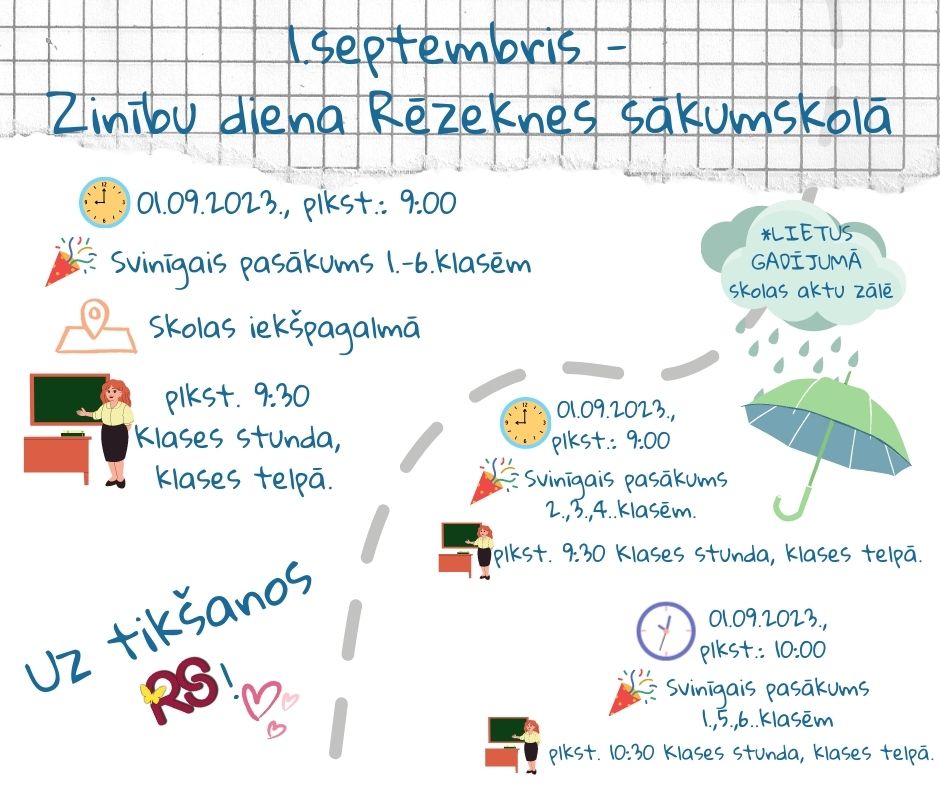 1.septembris -
Zinību diena Rēzeknes sākumskolā
01.09.2023., plkst.: 9:00
Svinīgais pasākums 1.-6.klasēm
Skolas iekšpagalmā
plkst. 9:30
Klases stunda,
klases telpā.
Uz tikšanos
RS!
*LIETUS
GADĪJUMĀ
skolas aktu zālē
01.09.2023.,
plkst.: 9:00
Svinīgais pasākums
2.,3.,4..klasēm.
plkst. 9:30 Klases stunda, klases telpā.
01.09.2023.,
plkst.: 10:00
Svinīgais pasākums
1.,5.,6..klasēm
plkst. 10:30 Klases stunda, klases telpā.